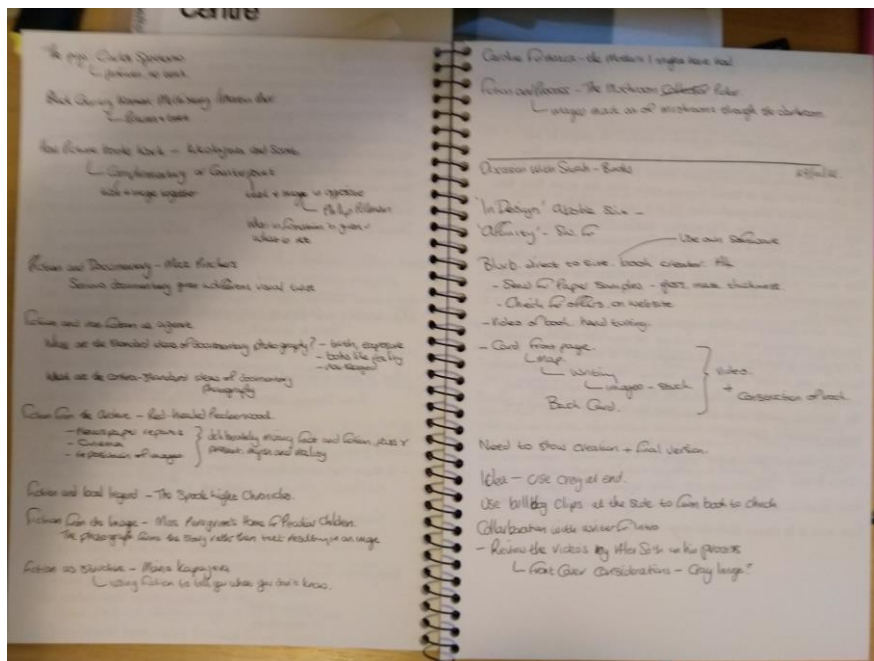 Centre
The pigs. Carlos Spottorno
How Picture Books Work – Nikolajeva and Scott
Complimentary or Counterpoint
text + image together
text + image in opposition
Philip Pullman
What information is given +
What is not.
Fiction and Documentary – Max Pinckers
Serious documentary given a different visual twist
Fiction and use fiction as agent
What are the standard ideas of documentary photography? – truth, exposure
– looks like reality
– not staged
What are the contra-standard ideas of documentary
photography
Fiction from the Archive – Red-headed Peckerwood.
– Newspaper reports
– Cinema
– of images
deliberately mixing fact and fiction, past +
present, myth and reality
Fiction and local legend – The Spook Light Chronicles.
Fiction from the Image – Miss Peregrine's Home for Peculiar Children.
The photograph forms the story rather than text resulting in an image
Fiction as Structure – Maria Kapajeva
using fiction to tell you what you don't know.
Caroline – the Mothers I might have had
Fiction and Process – The Mushroom Collector
images made as of mushrooms through the darkroom
Discussion with Sarah – Books
'In Design' Adobe Suite –
'Affinity' –
Use own software
Blurb. direct to site. book creator
– Send for Paper samples – gloss, matt, thickness.
– Check for offers on website
– Video of book hand turning.
– Card front page.
Map
Writing
images – stack
Back Card.
Video.
+
Construction of book.
Need to show creation + final version.
Idea – use at end.
Use bulldog clips at the side to form book to check
Collaboration with writer for intro
– Review the videos by Alec Soth on his process
Front Cover Considerations –